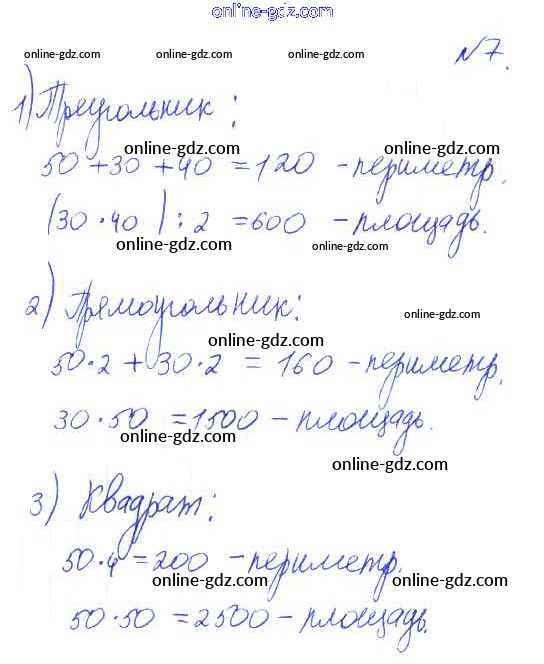 online-gdz.com
online-gdz.com online-gdz.com №7.
1) Треугольник:
50+30+40=120 - периметр.
online-gdz.com online-gdz.com
(30·40):2=600 - площадь.
online-gdz.com online-gdz.com
2) Прямоугольник:
online-gdz.com
online-gdz.com
50·2+30·2=160 - периметр.
30·50=1500 - площадь.
online-gdz.com
online-gdz.com
3) Квадрат:
50·4=200 - периметр.
online-gdz.com online-gdz.com
50·50=2500 - площадь.
online-gdz.com